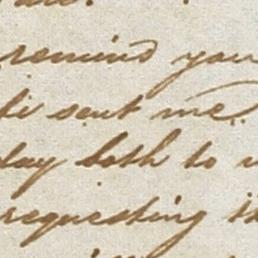 remind you
sent me
day both to
requesting